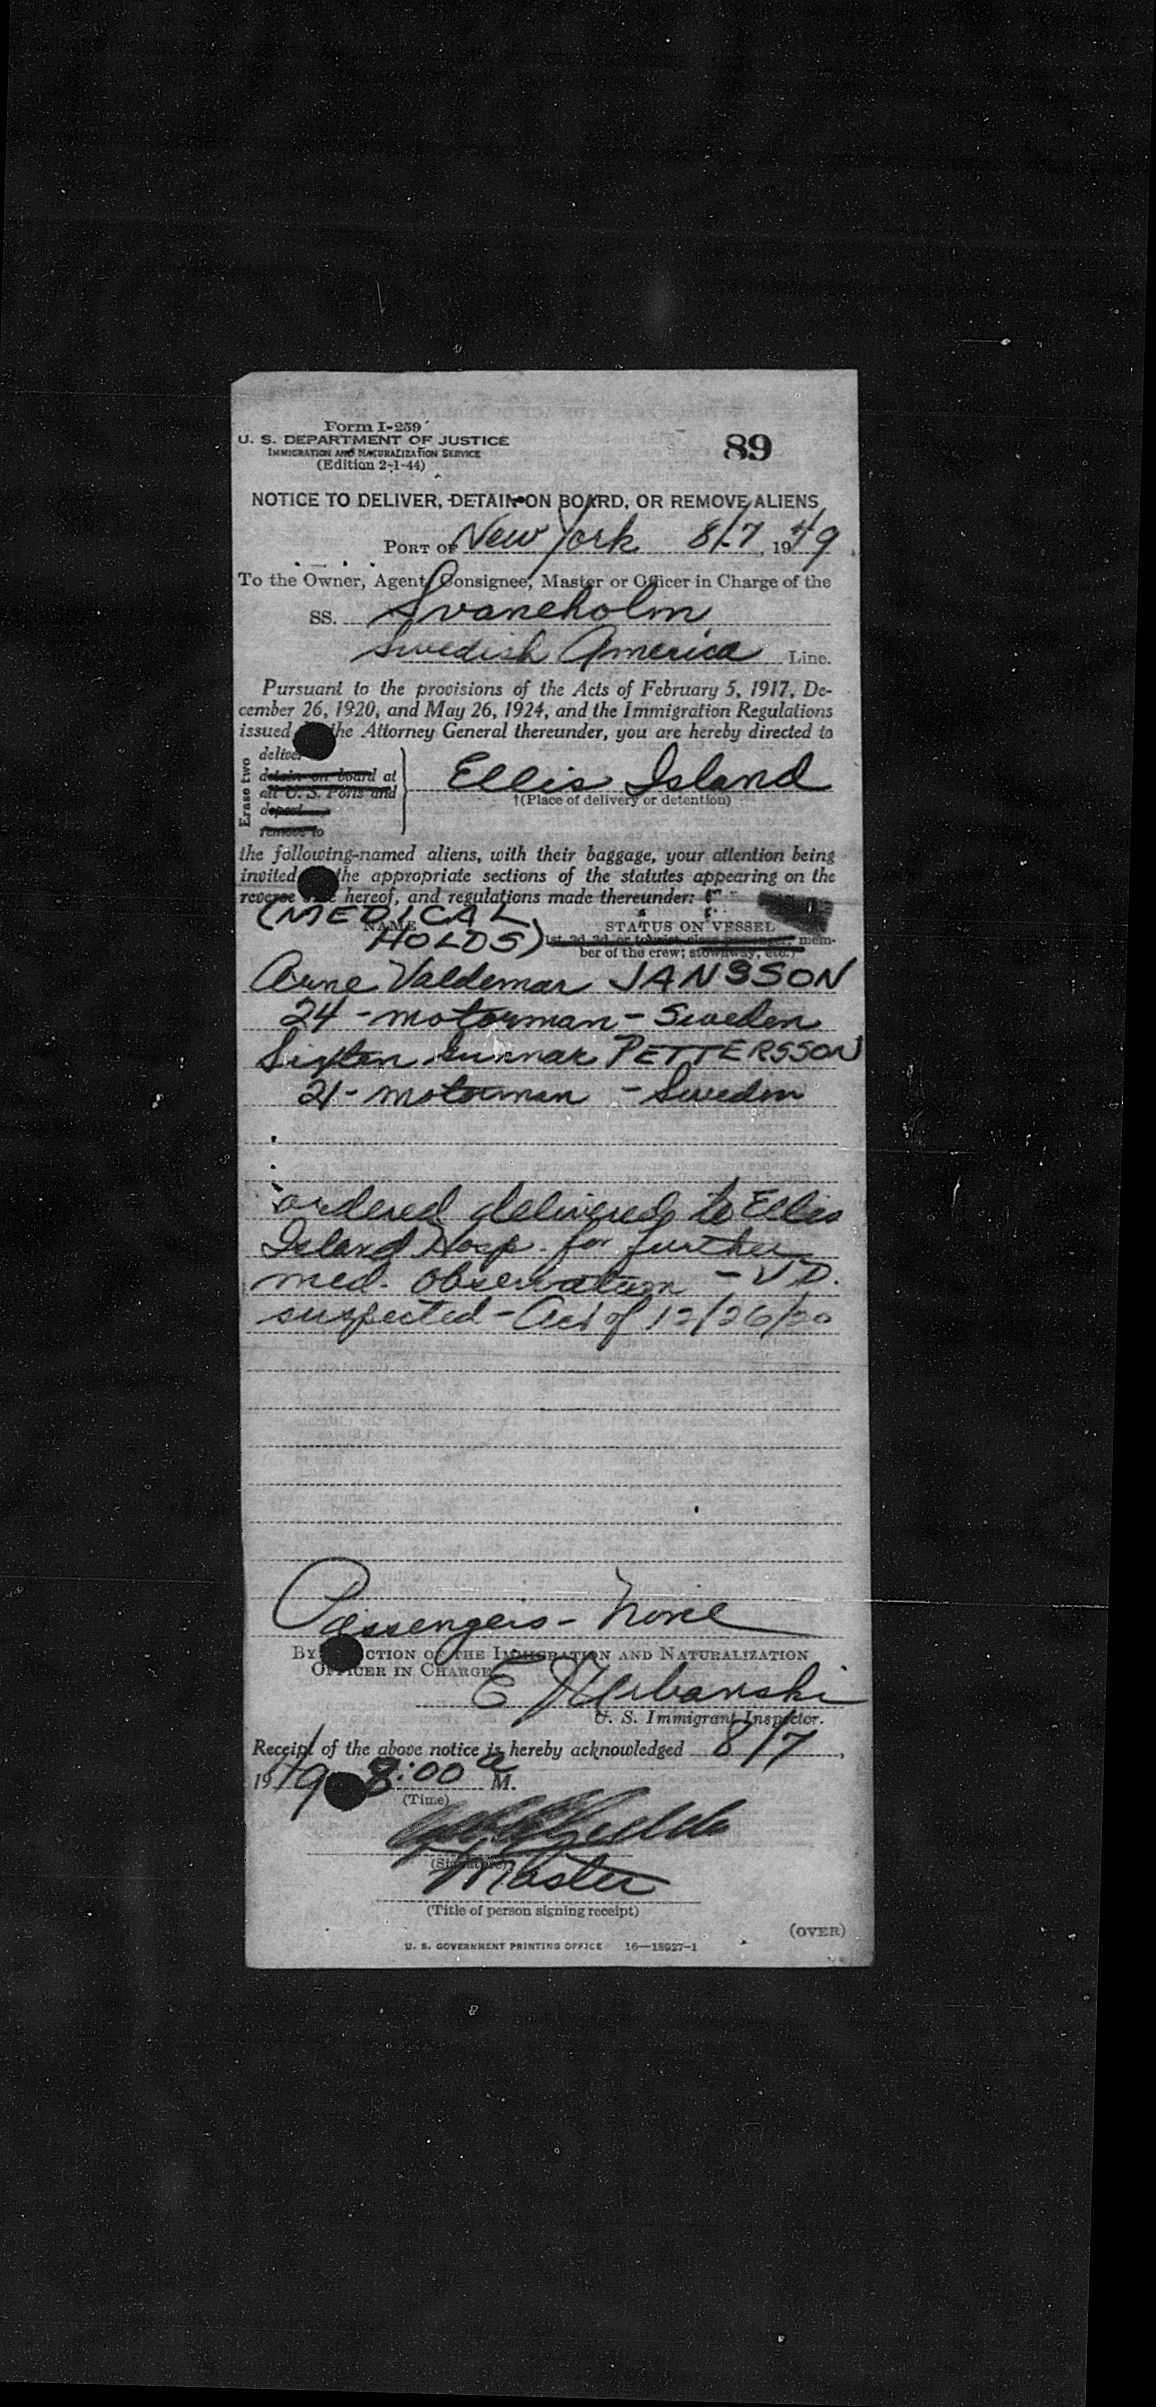 Form I-259
U. S. DEPARTMENT OF JUSTICE
IMMIGRATION AND NATURALIZATION SERVICE
(Edition 2-1-44)
89
NOTICE TO DELIVER, DETAIN ON BOARD, OR REMOVE ALIENS
PORT OF New York 8/7, 1949
To the Owner, Agent, Consignee, Master or Officer in Charge of the
SS. Svaneholm
Swedish America Line.
Pursuant to the provisions of the Acts of February 5, 1917, De-
cember 26, 1920, and May 26, 1924, and the Immigration Regulations
issued the Attorney General thereunder, you are hereby directed to
Erase two
deliver
detain on board at
all U. S. Ports and
deport
remove to
Ellis Island
†(Place of delivery or detention)
the following-named aliens, with their baggage, your attention being
invited the appropriate sections of the statutes appearing on the
reverse hereof, and regulations made thereunder:
(MEDICAL
HOLDS)
NAME
STATUS ON VESSEL
1st, 2d, 3d, or tourist class passenger; mem-
ber of the crew; stowaway, etc.)
Arne Valdemar JANSSON
24 - motorman - Sweden
Sixten Gunnar PETTERSSON
21 - motorman - Sweden
ordered delivered to Ellis
Island Hosp. for further
med. observation - VD.
suspected - Act of 12/26/20
Passengers - None
BY CTION OF THE IMMIGRATION AND NATURALIZATION
OFFICER IN CHARGE
E J Urbanski
U. S. Immigrant Inspector.
Receipt of the above notice is hereby acknowledged 8/7,
1949 8:00 a M.
(Time)
(Signature)
Master
(Title of person signing receipt)
(OVER)
U. S. GOVERNMENT PRINTING OFFICE 16—18937-1